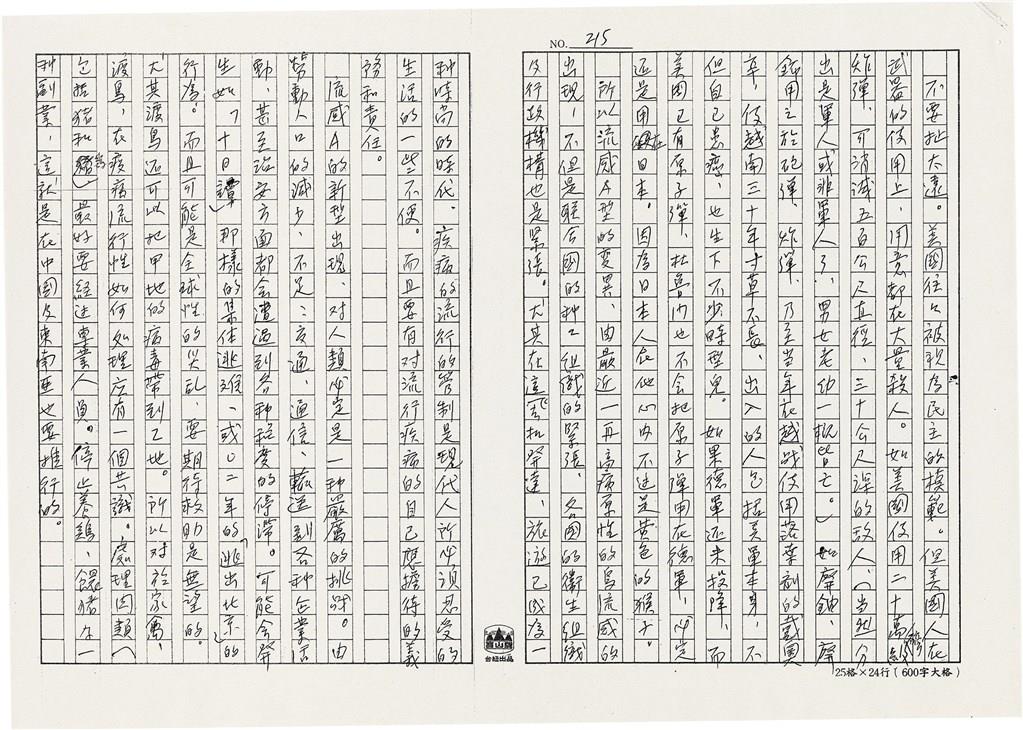 NO. 215
不要扯太遠。美國往往被視為民主的模範。但美國人在
武器的使用上,用意都在大量殺人。如美國使用二十萬級
炸彈,可消滅五百公尺直徑,三十公尺深的敵人,(當然分
出是軍人或非軍人了,男女老幼一概皆亡。)如廢鈾,廢
鈾用之於砲彈、炸彈,乃至當年在越戰使用落葉劑的戴奧
辛,使越南三十年寸草不長,出入的人包括美軍本身,不
但自己患療,也生下不少畸型兒。如果德軍還未投降,而
美國已有原子彈,杜魯門也不會把原子彈用在德軍,必定
還是用在日本。因為日本人在他心中不過是黃色的猴子。
所以流感A型的變異,由最近一再高病原性的鳥流感的
出現,不但是聯合國的種種組織的緊張,各國的衛生組織
及行政機構也是緊張。尤其在這飛機發達,旅游已成為一
種時尚的時代,疾病的流行的管制是現代人所必須忍受的
生活的一些不便。而且要有對流行疾病的自己應擔待的義
務和責任。
流感A的新型出現,對人類必定是一種嚴厲的挑戰。由
勞動人口的減少、不足;交通、通信、輸送到各種企業活
動,甚至治安方面都會遭遇到各種程度的停滯。可能會發
生如「十日譚」那樣的集体逃難,或○二年的「逃出北京」的
行為。而且可能是全球性的災難,要期待救助是無望的。
尤其渡鳥還可以把甲地的病毒帶到乙地。所以對於家禽,
渡鳥,在疫病流行性如何处理应有一個共識。處理肉類(
包括豬和雞)最好要經過專業人員。停止養鷄、餵猪作一
種副業,這就是在中國及東南亞也要推行的。
台紐出品
25格×24行(600字大格)